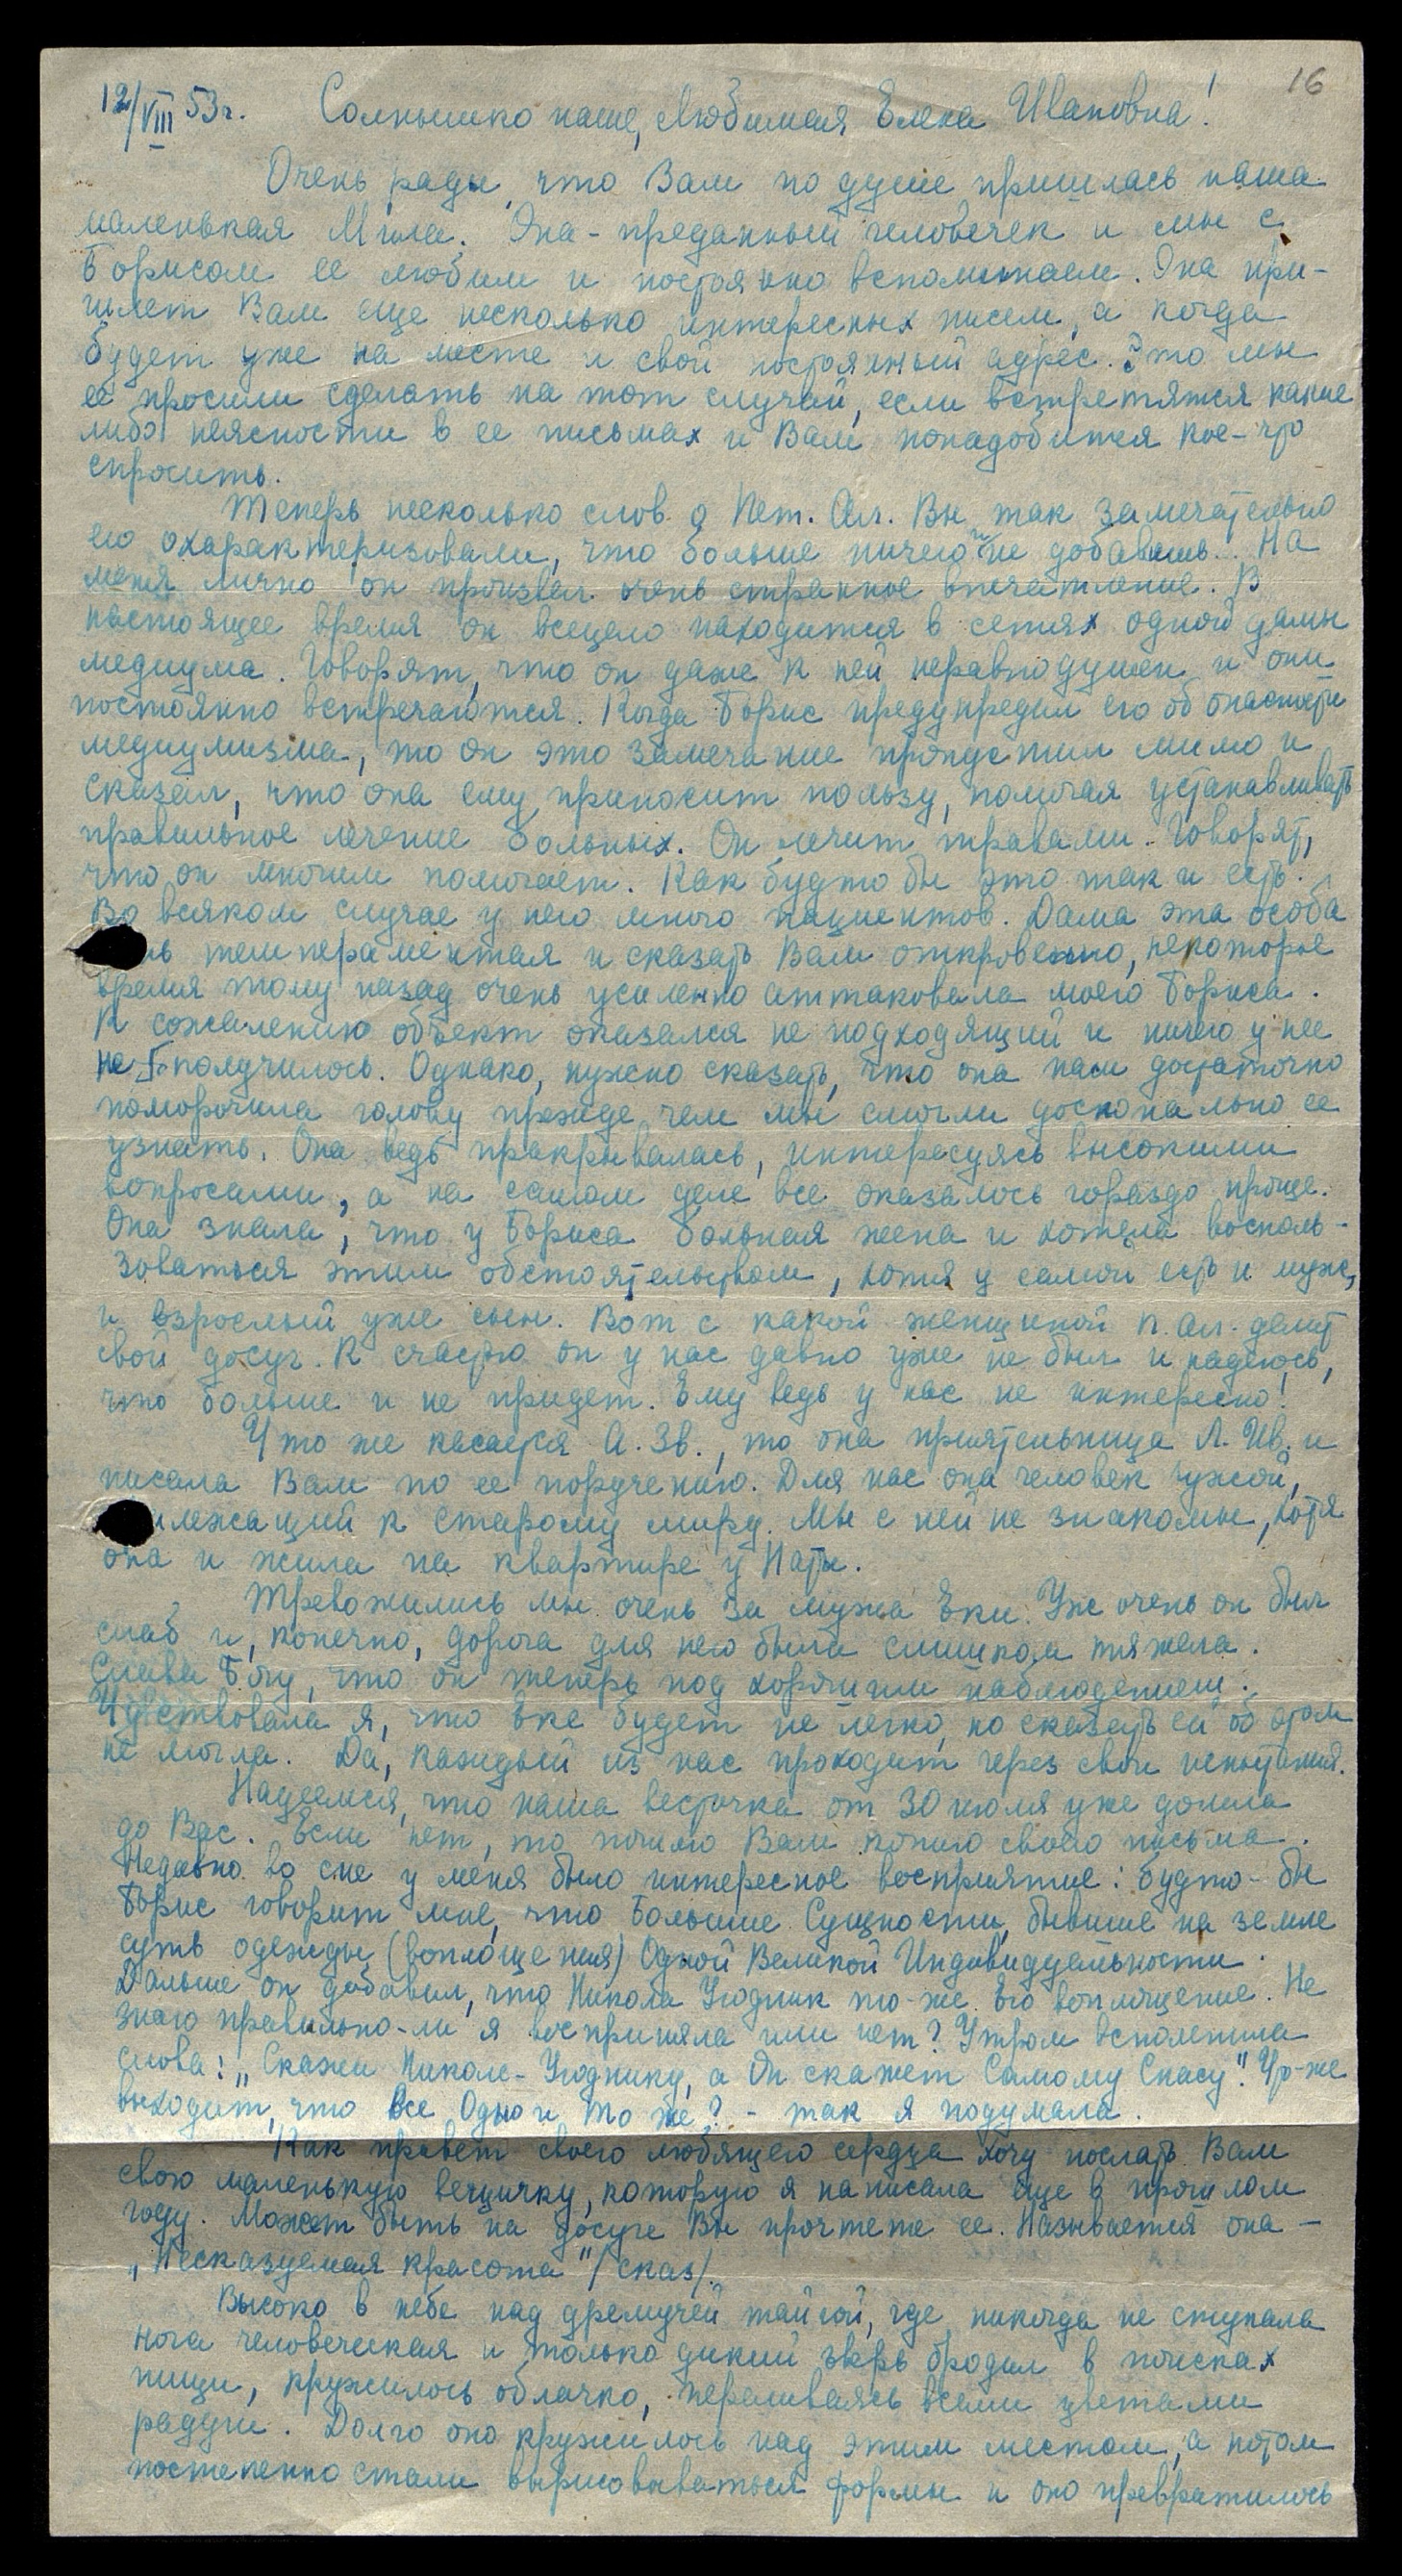 16
12/VIII 53г. Солнышко наше, любимая Елена Ивановна!
Очень рады, что Вам по душе пришлась наша
маленькая Мила. Она - преданный человечек и мы с
Борисом ее любим и постоянно вспоминаем. Она при-
шлет Вам еще несколько интересных писем, а когда
будет уже на месте и свой постоянный адрес. Это мы
ее просили сделать на тот случай, если встретятся какие
либо неясности в ее письмах и Вам понадобится кое-что
спросить.
Теперь несколько слов о Пет. Ал. Вы так замечательно
его охарактеризовали, что больше ничего и не добавишь.. На
меня лично он произвел очень странное впечатление. В
настоящее время он всецело находится в сетях одной дамы
медиума. Говорят, что он даже к ней неравнодушен и они
постоянно встречаются. Когда Борис предупредил его об опасности
медиумизма, то он это замечание пропустил мимо и
сказал, что она ему приносит пользу, помогая устанавливать
правильное лечение больных. Он лечит травами. Говорят,
что он многим помогает. Как будто бы это так и есть.
Во всяком случае у него много пациентов. Дама эта особа
нь темпераментая и сказать Вам откровенно, некоторое
время тому назад очень усиленно аттаковала моего Бориса.
К сожалению объект оказался не подходящий и ничего у нее
не получилось. Однако, нужно сказать, что она нам достаточно
поморочила голову прежде, чем мы смогли досконально ее
узнать. Она ведь прикрывалась, интересуясь высокими
вопросами, а на самом деле все оказалось гораздо проще.
Она знала, что у Бориса больная жена и хотела восполь-
зоваться этим обстоятельством, хотя у самой есть и муж,
и взрослый уже сын. Вот с какой женщиной П. Ал. делит
свой досуг. К счастью он у нас давно уже не был и надеюсь,
что больше и не придет. Ему ведь у нас не интересно!
Что же касается А. Зв., то она приятельница Л. Ив. и
писала Вам по ее поручению. Для нас она человек чужой,
илежащий к старому миру. Мы с ней не знакомы, хотя
она и жила на квартире у Наты.
Тревожились мы очень за мужа Еки. Уж очень он был
слаб и, конечно, дорога для него была слишком тяжела.
Слава Богу, что он теперь под хорошим наблюдением.
Чувствовала я, что Еке будет не легко, но сказать ей об этом
не могла. Да, каждый из нас проходит через свои испытания.
Надеемся, что наша весточка от 30 июля уже дошла
до Вас. Если нет, то пошлю Вам копию своего письма.
Недавно во сне у меня было интересное восприятие: будто-бы
Борис говорит мне, что Большие Сущности, бывшие на земле
суть одежды (воплощения) Одной Великой Индивидуальности.
Дальше он добавил, что Никола Угодник то-же Его воплощение. Не
знаю правильно-ли я восприняла или нет? Утром вспомнила
слова: „Скажи Николе-Угоднику, а Он скажет Самому Спасу". Что-же
выходит, что Все Одно и то же? - так я подумала.
Как привет своего любящего сердца хочу послать Вам
свою маленькую вещичку, которую я написала еще в прошлом
году. Может быть на досуге Вы прочтете ее. Называется она -
„Несказуемая красота" /сказ/.
Высоко в небе над дремучей тайгой, где никогда не ступала
нога человеческая и только дикий зверь бродил в поисках
пищи, кружилось облачко, переливаясь всеми цветами
радуги. Долго оно кружилось над этим местом, а потом
постепенно стали вырисовываться формы и оно превратилось